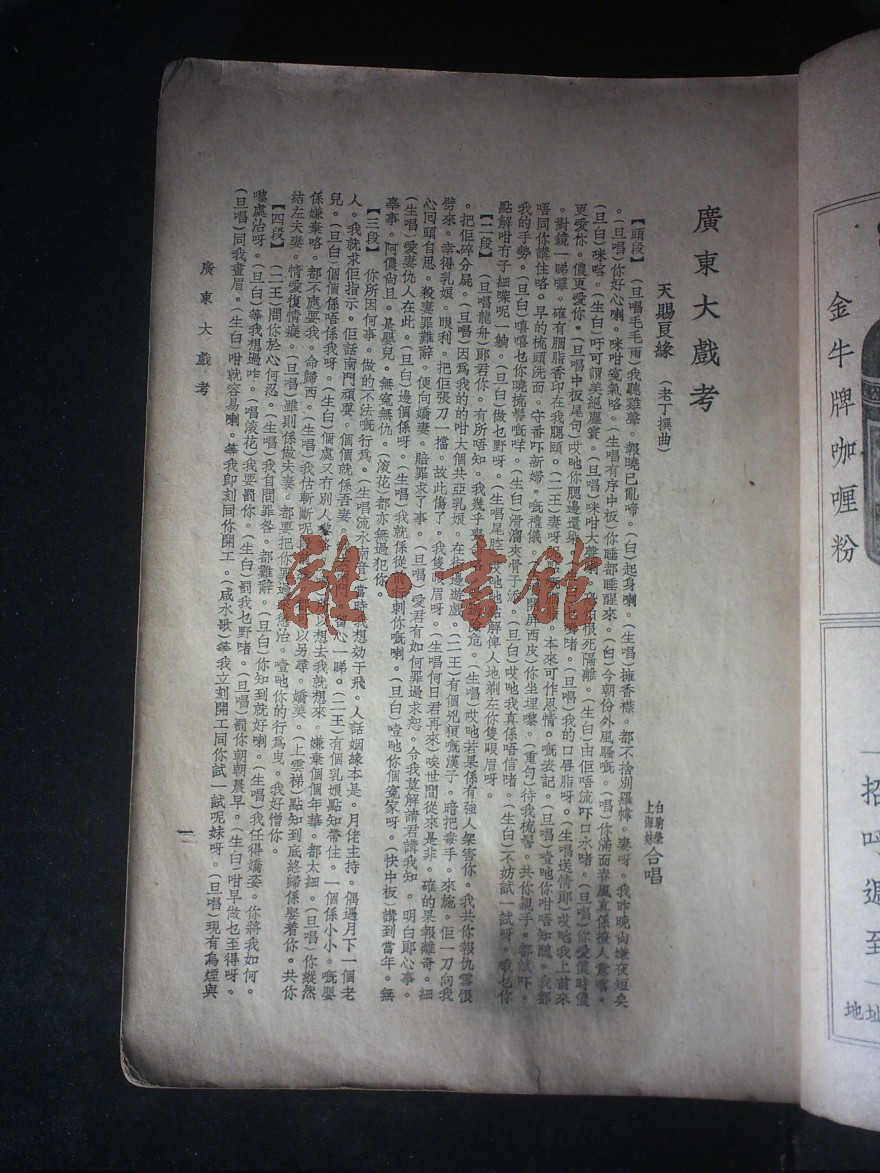 廣東大戲考
天賜良緣 (老丁撰曲)
上海妹 合唱
【頭段】 (旦唱毛毛雨) 我聽雞聲。報曉已亂啼。(白) 起身喇。(生唱) 擁香襟。都不捨別羅幃。妻呀。我昨晚尚嫌夜短矣
。(旦唱) 你好心喇。咪咁寃氣咯。(生唱有序中板) 你睡都睡醒來。(白) 今朝份外風騷嘅。(唱) 你滿面春風真係撩人意喀。
(旦白) 咪喀。(生白) 吁可謂美絕塵寰。(旦唱) 咪咁大聲
恨死隔離。(生白) 由佢唔流吓口水啫。(旦唱) 你愛儂時儂
更愛你。儂更愛你。(旦唱中板尾句) 哎吔你腮邊還
啫。(旦唱) 我的口唇脂呀。(生唱送情郎) 哎吔我上前來
。對鏡一睇囉。確有胭脂香印在我腮頭。(二王) 妻呀
本來可作恩情。嘅表記。(旦唱) 噎吔你咁唔知醜。我都
唔同你講住咯。早的梳頭洗面。守番吓新婦。嘅禮儀。
開屏西皮) 你坐埋嚟。(重句) 待我梳髻。共你親手。都試吓。
我的手勢。(旦白) 嘻嘻也你曉梳髻嘅咩。(生白) 滑溜夾骨子添。(旦白) 哎吔我真係唔信啫。(生白) 不妨試一試呀。哦乜你
點解咁冇子細㗎呢一躺。(旦白) 做乜野呀。(生唱尾腔) 哎吔吔點解俾人地剃左你隻眼眉呀。
【二段】 (旦唱龍舟) 郞君你。有所唔知。我幾乎
危。(生唱) 哎吔若果係有強人架害你。我共你報仇雪恨
。把佢碎分屍。(旦唱) 因爲我的的咁大個共亞乳娘。在街邊遊戲。(二王) 有個兇狠嘅漢子。暗把毒手。來施。佢一刀向我
劈來。幸得乳娘。眼利。把佢張刀一擋。故此傷了。我隻
眉呀。(生唱何日君再來) 唉世間從來是非。確的果報離奇。細
心囘頭自思。殺妻罪難辭。便向嬌妻。賠罪求了事。(旦唱) 愛君有如何罪過求恕。令我莫解請君講我知。明白郞心事。
(生唱) 愛妻仇人在此。(旦白) 邊個係呀。(生唱) 我就係從前行刺你嘅喇。(旦白) 噎吔你個寃家呀。(快中板) 講到當年。無
辜事。阿儂尙且。是嬰兒。無寃無仇。(滾花) 都亦無過犯你。
【三段】 你所因何事。做的不法嘅行爲。(生唱流水南音) 當時我想効于飛。人話姻緣本是。月佬主持。偶過月下一個老
人。我就求佢指示。佢話南門頑耍。個個就係吾妻。
心一睇。(二王) 有個乳娘點知帶住。一個係小小。嘅嬰
兒。(旦白) 個個係唔係我呀。(生白) 個處又冇別人
以想去我就想來。嫌棄個個年華。都太細。(旦唱) 你縱然
係嫌棄咯。都不應要我。命歸西。(生唱) 我估斬斷呢
以另尋。嬌美。(上雲梯) 點知到底終歸係娶着你。共你
結左夫妻。情愛復情癡。(旦唱) 雖則係做夫妻。都要把你罪過
懲治。噎吔你的行爲曳。我好憎你。
【四段】 (二王) 問你於心何忍。(生唱) 我自問罪咎。都難辭。(旦白) 你知到就好喇。(生唱) 我任得嬌姿。你將我如何。
嚟處治呀。(旦白) 等我想過咋。(唱滾花) 我要罰你。(生白) 罰我乜野啫。(旦唱) 罰你朝朝晨早。(生白) 咁早做乜至得呀。
(旦唱) 同我畫眉。(生白) 咁就容易喇。等我卽刻同你開工。(咸水歌) 等我立刻開工同你試一試呢妹呀。(旦唱) 現有烏煙與
廣東大戲考
一
雜書館
金牛牌咖喱粉
招呼週至
地址